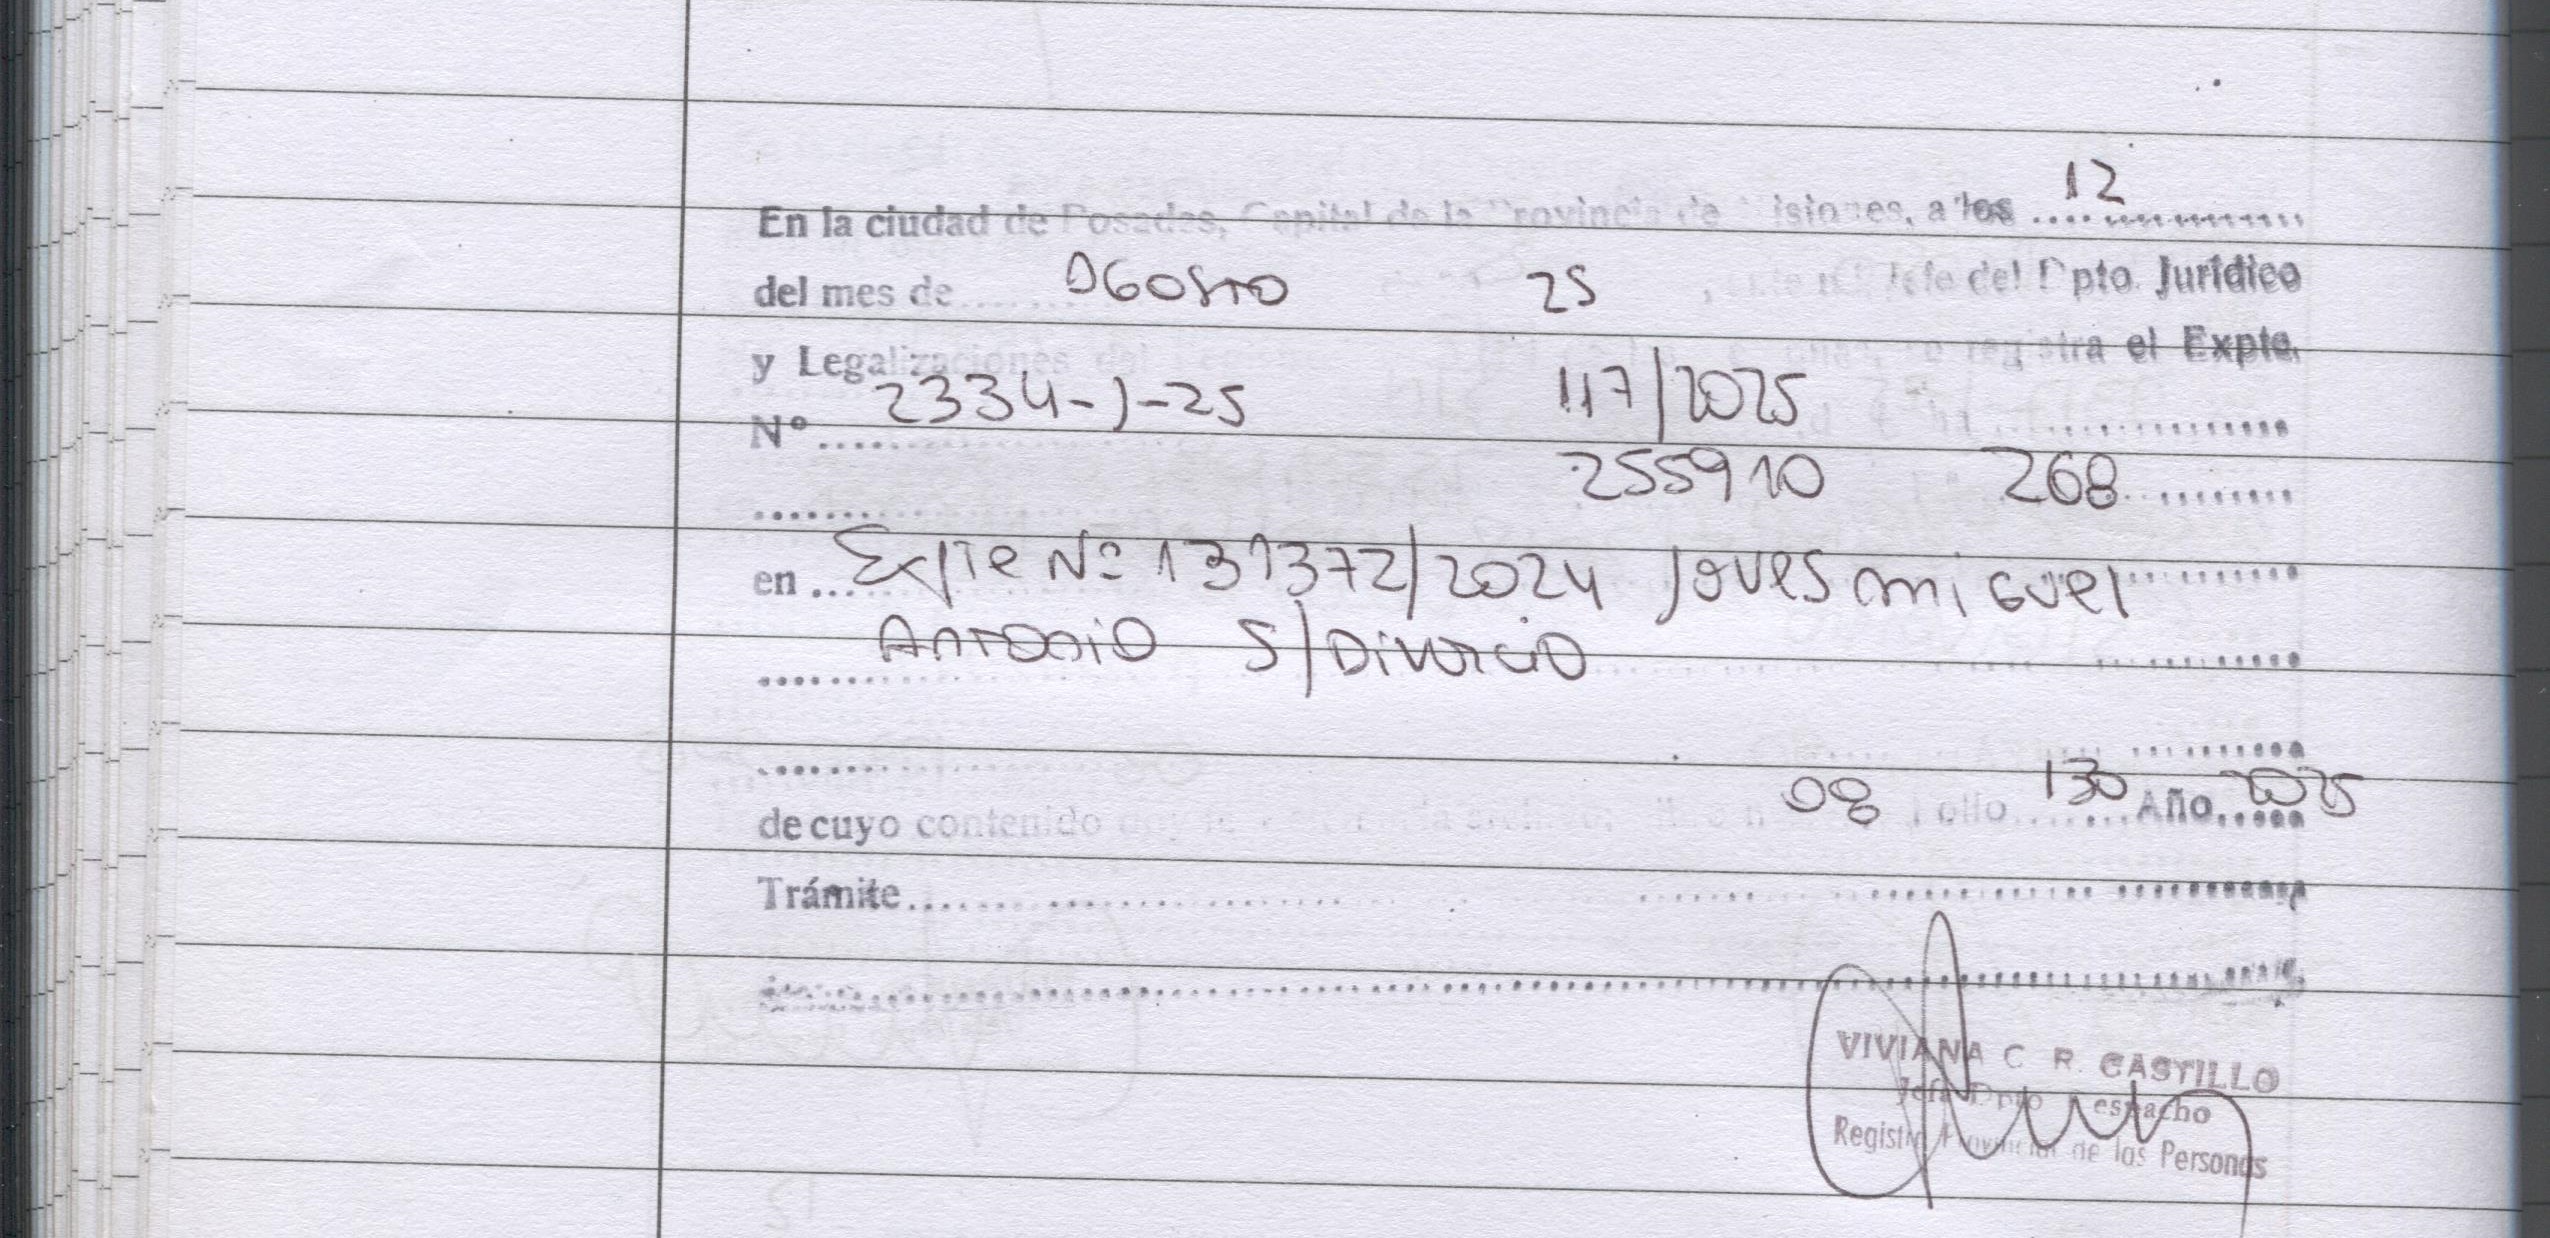 12
En la ciudad de Posadas, Capital de la Provincia de Misiones, a los ....................
del mes de ....... AGOSTO 25 , Jefe del Dpto. Jurídico
y Legalizaciones del registra el Expte.
Nº ..... 2334-J-25 117/2025 ....................
....... 255910 268 .........
en ... Expte Nº 131372/2024 Joves Miguel .........
Antonio S/Divorcio
de cuyo contenido 08 Folio 130 Año 2025
Trámite ........................................
........................................
VIVIANA C. R. CASTILLO
Jefa Dpto Despacho
Registro Provincial de las Personas